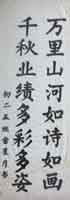 万里山河如诗如画
千秋业绩多彩多姿